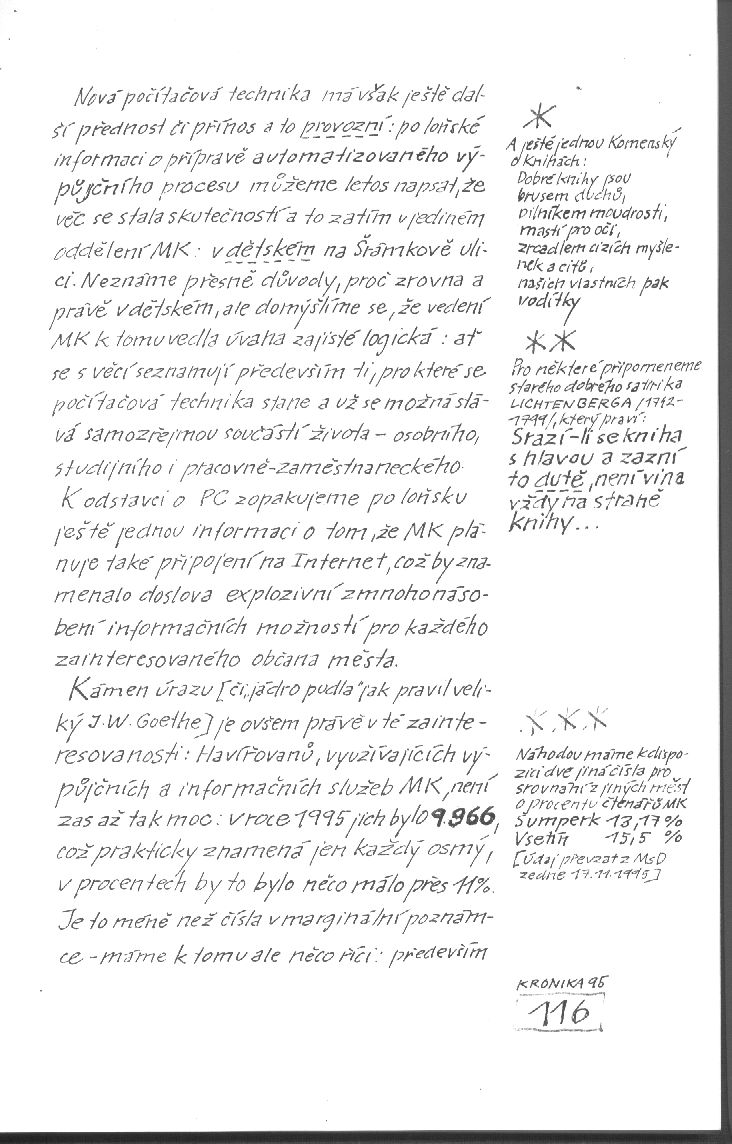 Nová počítačová technika má však ještě dal-
ší přednost či přínos a to provozní: po loňské
informaci o přípravě automatizovaného vý-
půjčního procesu můžeme letos napsat, že
věc se stala skutečností a to zatím v jediném
oddělení MK: v dětském na Šrámkově uli-
ci. Neznáme přesně důvody, proč zrovna a
právě v dětském, ale domýšlíme se, že vedení
MK k tomu vedla úvaha zajisté logická: ať
se s věcí seznamují především ti, pro které se
počítačová technika stane a už se možná stá-
vá samozřejmou součástí života – osobního,
studijního i pracovně-zaměstnaneckého.
K odstavci o PC zopakujeme po loňsku
ještě jednou informaci o tom, že MK plá-
nuje také připojení na Internet, což by zna-
menalo doslova explozivní zmnohonáso-
bení informačních možností pro každého
zainteresovaného občana města.
Kámen úrazu [či „jádro pudla" jak pravil veli-
ký J.W. Goethe] je ovšem právě v té zainte-
resovanosti: Havířovanů, využívajících vý-
půjčních a informačních služeb MK, není
zas až tak moc: v roce 1995 jich bylo 9.966,
což prakticky znamená jen každý osmý,
v procentech by to bylo něco málo přes 11%.
Je to méně než čísla v marginální poznám-
ce - máme k tomu ale něco říci: především
*
A ještě jednou Komenský
o knihách:
Dobré knihy jsou
brusem duchů,
pilníkem moudrosti,
mastí pro oči,
zrcadlem cizích myšle-
nek a citů,
našich vlastních pak
vodítky
**
Pro některé připomeneme
starého dobrého satirika
LICHTENBERGA /1742-
1799/, který praví:
Srazí-li se kniha
s hlavou a zazní
to dutě, není vina
vždy na straně
knihy...
***
Náhodou máme k dispo-
zici dvě jiná čísla pro
srovnání z jiných měst
o procentu čtenářů MK
Šumperk 13,17 %
Vsetín 15,5 %
[Údaj převzat z MsD
ze dne 17.11.1995]
KRONIKA 95
116